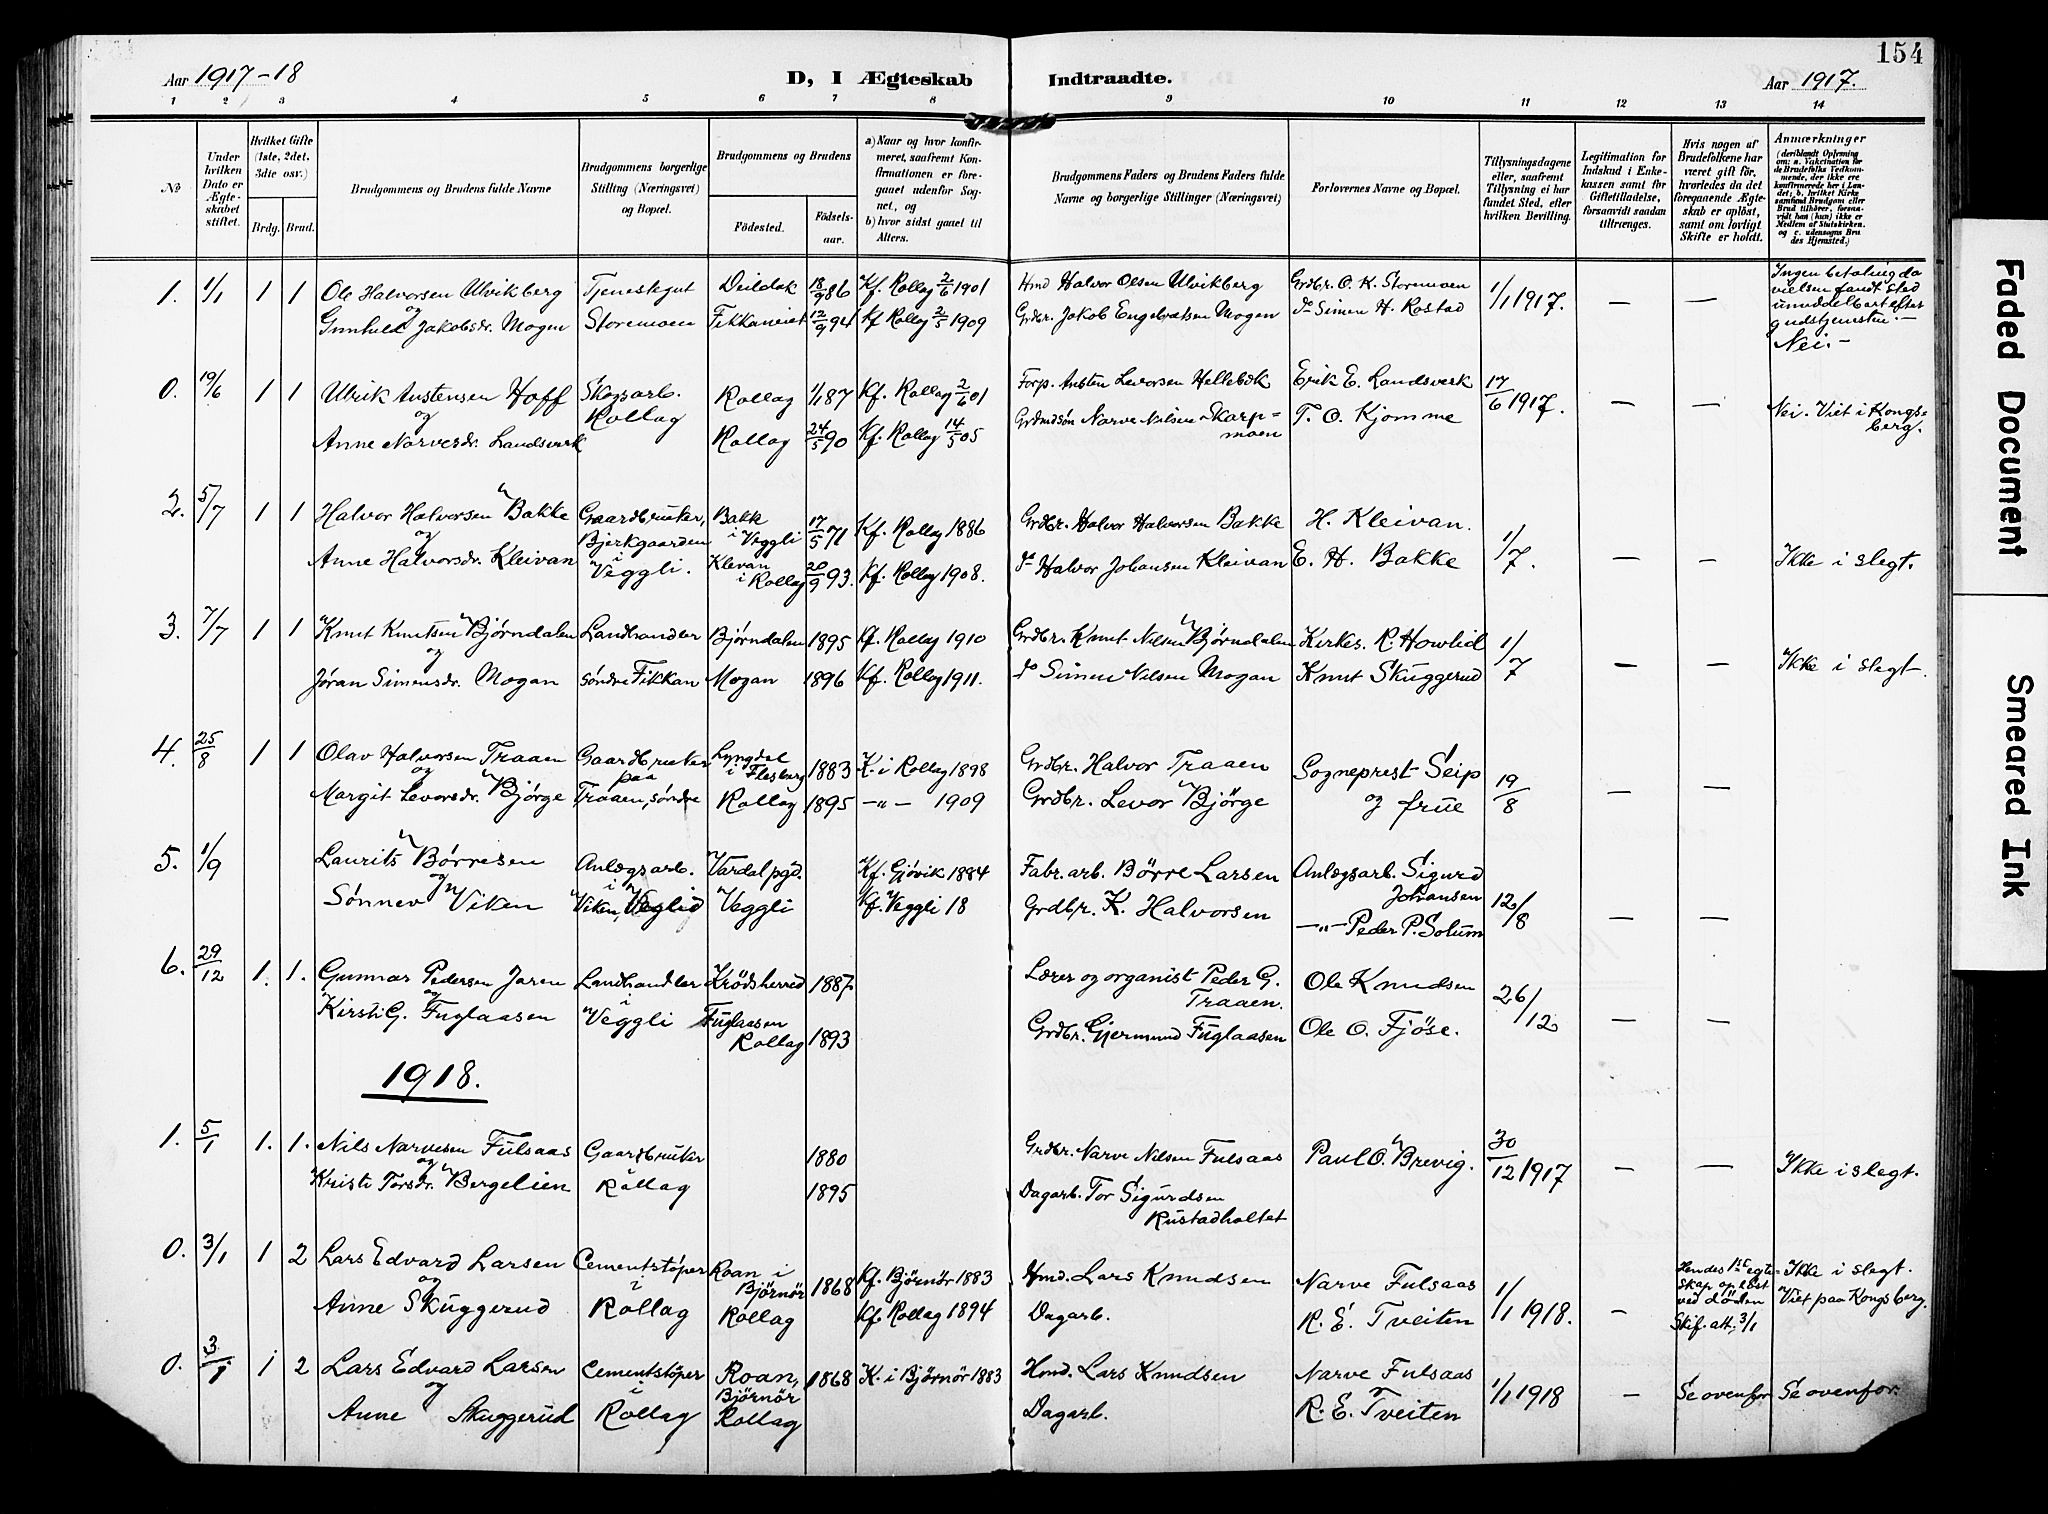 154
Aar 1917-18
D, I Ægteskab Indtraadte.
Aar 1917.
1 2 3 4 5 6 7 8 9 10 11 12 13 14
No
Under hvilken Dato er Ægte-skabet stiftet.
Hvilket Gifte (1ste, 2det, 3die osv.)
Brdg. Brud.
Brudgommens og Brudens fulde Navne
Brudgommens borgerlige Stilling (Næringsvei) og Bopæl.
Brudgommens og Brudens
Fødested. Fødsels-aar.
a) Naar og hvor konfir-meret, saafremt Kon-firmationen er fore-gaaet udenfor Sog-net, og
b) hvor sidst gaaet til Alters.
Brudgommens Faders og Brudens Faders fulde Navne og borgerlige Stillinger (Næringsvei)
Forlovernes Navne og Bopæl.
Tillysningsdagene eller, saafremt Tillysning ei har fundet Sted, efter hvilken Bevilling.
Legitimation for Indskud i Enke-kassen samt for Giftetilladelse, forsaavidt saadan tiltrænges.
Hvis nogen af Brudefolkene har været gift før, hvorledes da det foregaaende Ægte-skab er opløst, samt om lovligt Skifte er holdt.
Anmærkninger
(deriblandt Oplysning om: a. Vakcination for de Brudefolks Vedkom-mende, der ikke ere konfirmerede her i Lan-det; b. hvilket Kirke-samfund Brudgom eller Brud tilhører, forsaa-vidt han (hun) ikke er Medlem af Statskirken, og c. udensogns Bru-des Hjemsted.)
1. 1/1 1 1 Ole Halvorsen Ulvikberg Tjenestegut Deildok 18/9 86 Kf. Rollag 2/6 1901 Hmd Halvor Olsen Ulvikberg Grdbr. O. K. Storemoen 1/1 1917. — — Ingen betaling da vielsen fandt sted umiddelbart efter gudstjenesten.—
og
Gunhild Jakobsdr. Mogen Storemoen Fekkaneiet 12/9 94 Kf Rollag 2/5 1909 Grdbr. Jakob Engebretsen Mogen do Simen H. Rostad Nei.—
0. 19/6 1 1 Ulrik Austensen Hoff Skogsarb. Rollag 1/1 87 Kf. Rollag 2/6 01 Forp. Austen Levorsen Hellebæk Erik E. Landsverk 17/6 1917. — — Nei. Viet i Kongs-berg.
og Rollag
Anne Narvesdr. Landsverk Rollag 24/5 90 Kf. Rollag 14/5 05 Grdmdsøn Narve Nilsen Skarp=moen T. O. Kjomme
2. 5/7 1 1 Halvor Halvorsen Bakke Gaardbruker, Bakk i Veggli 17/5 71 Kf. Rollag 1886 Grdbr. Halvor Halvorsen Bakke H. Kleivan. 1/7. — — Ikke i slegt.
og Bjerkgaarden i
Anne Halvorsdr. Kleivan Veggli. Klevan i Rollag 20/9 93. Kf. Rollag 1908. do Halvor Johansen Kleivan E. H. Bakke
3. 7/7 1 1 Knut Knutsen Bjørndalen Landhandler Bjørndalen 1895 Kf. Rollag 1910 Grdbr. Knut Nilsen Bjørndalen Kirkes. R. Howlid 1/7 — — Ikke i slegt.
og
Jøran Simensdr. Mogan søndre Fikkan Mogan 1896 Kf. Rollag 1911. do Simen Nilsen Mogan Knut Skuggerud
4. 25/8 1 1 Olav Halvorsen Traaen Gaardbruker Lyngdal i Flesberg 1883 K. i Rollag 1898 Grdbr. Halvor Traaen Sogneprest Seip 19/8 — —
og paa
Margit Levorsdr. Bjørge Traaen, søndre Rollag 1895 —"— 1909 Grdbr. Levor Bjørge og frue
5. 1/9 Laurits Børresen Anlægsarb. Vardal pgd. Kf. Gjøvik 1884 Fabr. arb. Børre Larsen Anlægsarb. Sigurd Johansen 12/8 — —
og i
Sønnev Viken Viken, Veglid Veggli Kf. Veggli 18 Grdbr. K. Halvorsen —"— Peder P. Solum
6. 29/12 1. 1. Gunnar Pedersen Jaren Landhandler Krödsherred 1887 Lærer og organist Peder G. Traaen. Ole Knudsen 26/12 — —
og i
Kirsti G. Fuglaasen Veggli Fuglaasen Rollag 1893 Grdbr. Gjermund Fuglaasen Ole O. Fjöse.
1918.
1. 5/1 1. 1. Nils Narvesen Fulsaas Gaardbruker 1880 Grdbr. Narve Nilsen Fulsaas Paul O. Brevig. 30/12 1917 — — Ikke i slegt.
og
Kristi Torsdr. Bergelien Rollag 1895 Dagarb. Tor Sigurdsen Rustadholtet
0. 3/1 1 2 Lars Edvard Larsen Cementstöper Roan i Björnör 1868 Kf. Björnör 1883 Hmd. Lars Knudsen Narve Fulsaas 1/1 1918. — Hendes 1ste egte-skap opløst ved döden Skif. att. 3/1 Ikke i slegt. Viet paa Kongsberg.
og i
Anne Skuggerud Rollag Rollag Kf. Rollag 1894 Dagarb. R. E. Tveiten
0. 3/1 1 2 Lars Edvard Larsen Cementstöper Roan, Björnör 1868 K. i Björnör 1883 Hmd. Lars Knudsen Narve Fulsaas 1/1 1918 — Se ovenfor Se ovenfor.
og i
Anne Skuggerud Rollag Rollag Dagarb. R. E. Tveiten
Faded Document
Smeared Ink